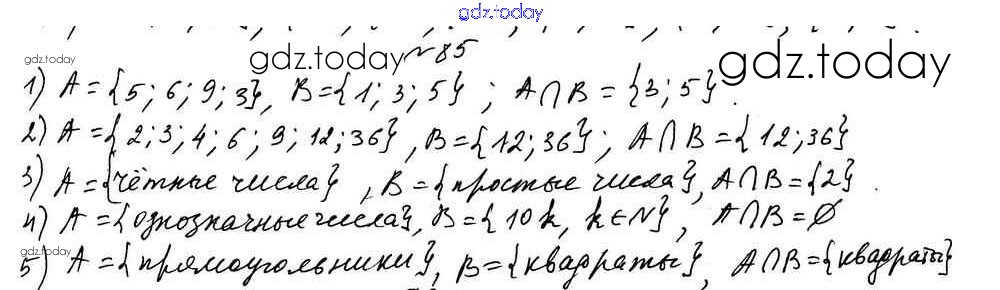 gdz.today
№85
gdz.today gdz.today gdz.today
1) A={5; 6; 9; 3}, B={1; 3; 5} ; A∩B={3; 5}.
2) A={2; 3; 4; 6; 9; 12; 36}, B={12; 36}; A∩B={12; 36}
3) A={чётные числа}, B={простые числа}, A∩B={2}.
4) A={однозначные числа}, B={10k, k∈N}, A∩B=∅
gdz.today
5) A={прямоугольники}, B={квадраты}, A∩B={квадраты}